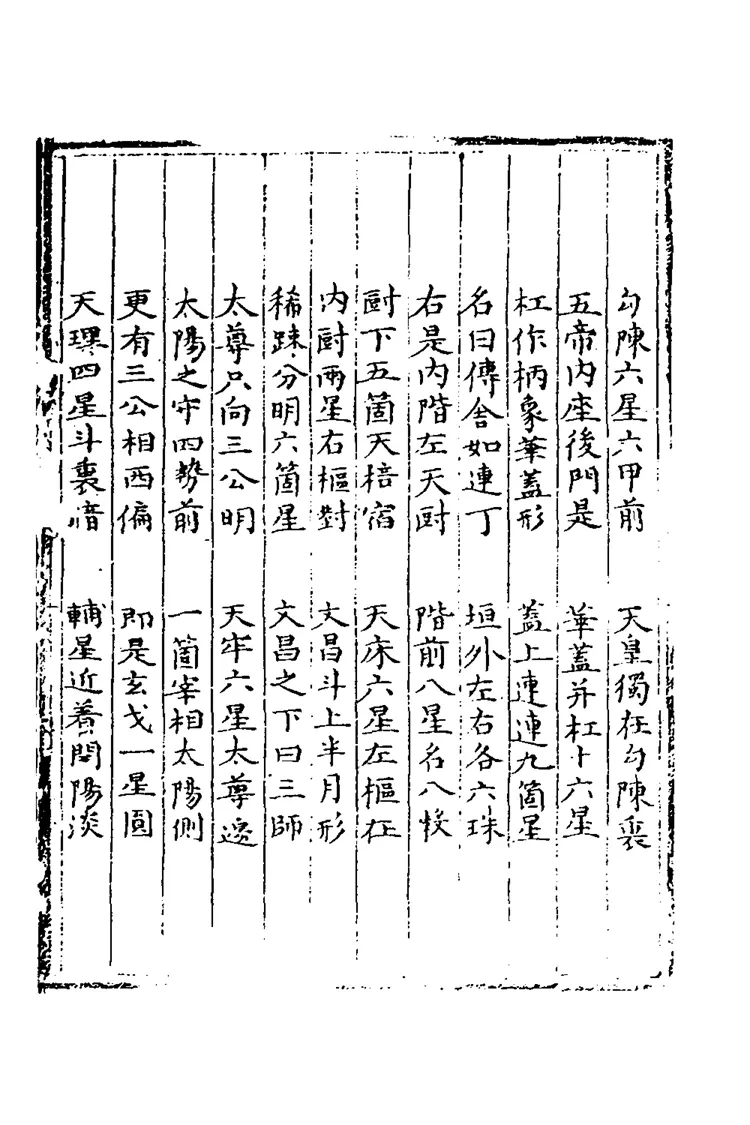 勾陳六星六甲前　天皇獨在勾陳裏
五帝內座後門是　華蓋并杠十六星
杠作柄象華蓋形　蓋上連連九箇星
名曰傳舍如連丁　垣外左右各六珠
右是內階左天厨　階前八星名八糓
厨下五箇天棓宿　天床六星左樞在
內厨兩星右樞對　文昌斗上半月形
稀踈分明六箇星　文昌之下曰三師
太尊只向三公明　天牢六星太尊邊
太陽之守四勢前　一箇宰相太陽側
更有三公相西偏　即是玄戈一星圓
天理四星斗裏暗　輔星近着開陽淡